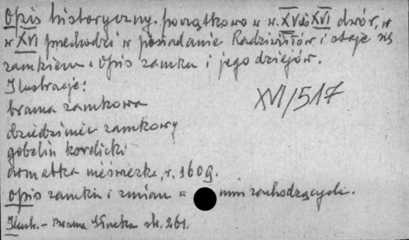 Opis historyczny. początkowo w w. XV i XVI dwór, w
w XVI przechodzi w posiadanie Radziwiłłów i staje się
zamkiem. Opis zamku i jego dziejów.
Ilustracje:
brama zamkowa
XVI/517
dziedziniec zamkowy
gobelin kordicki
armatka nieświeska, r. 1609.
Opis zamku i zmian w nim zachodzących.
Ilustr. - Brama Słucka str. 261.